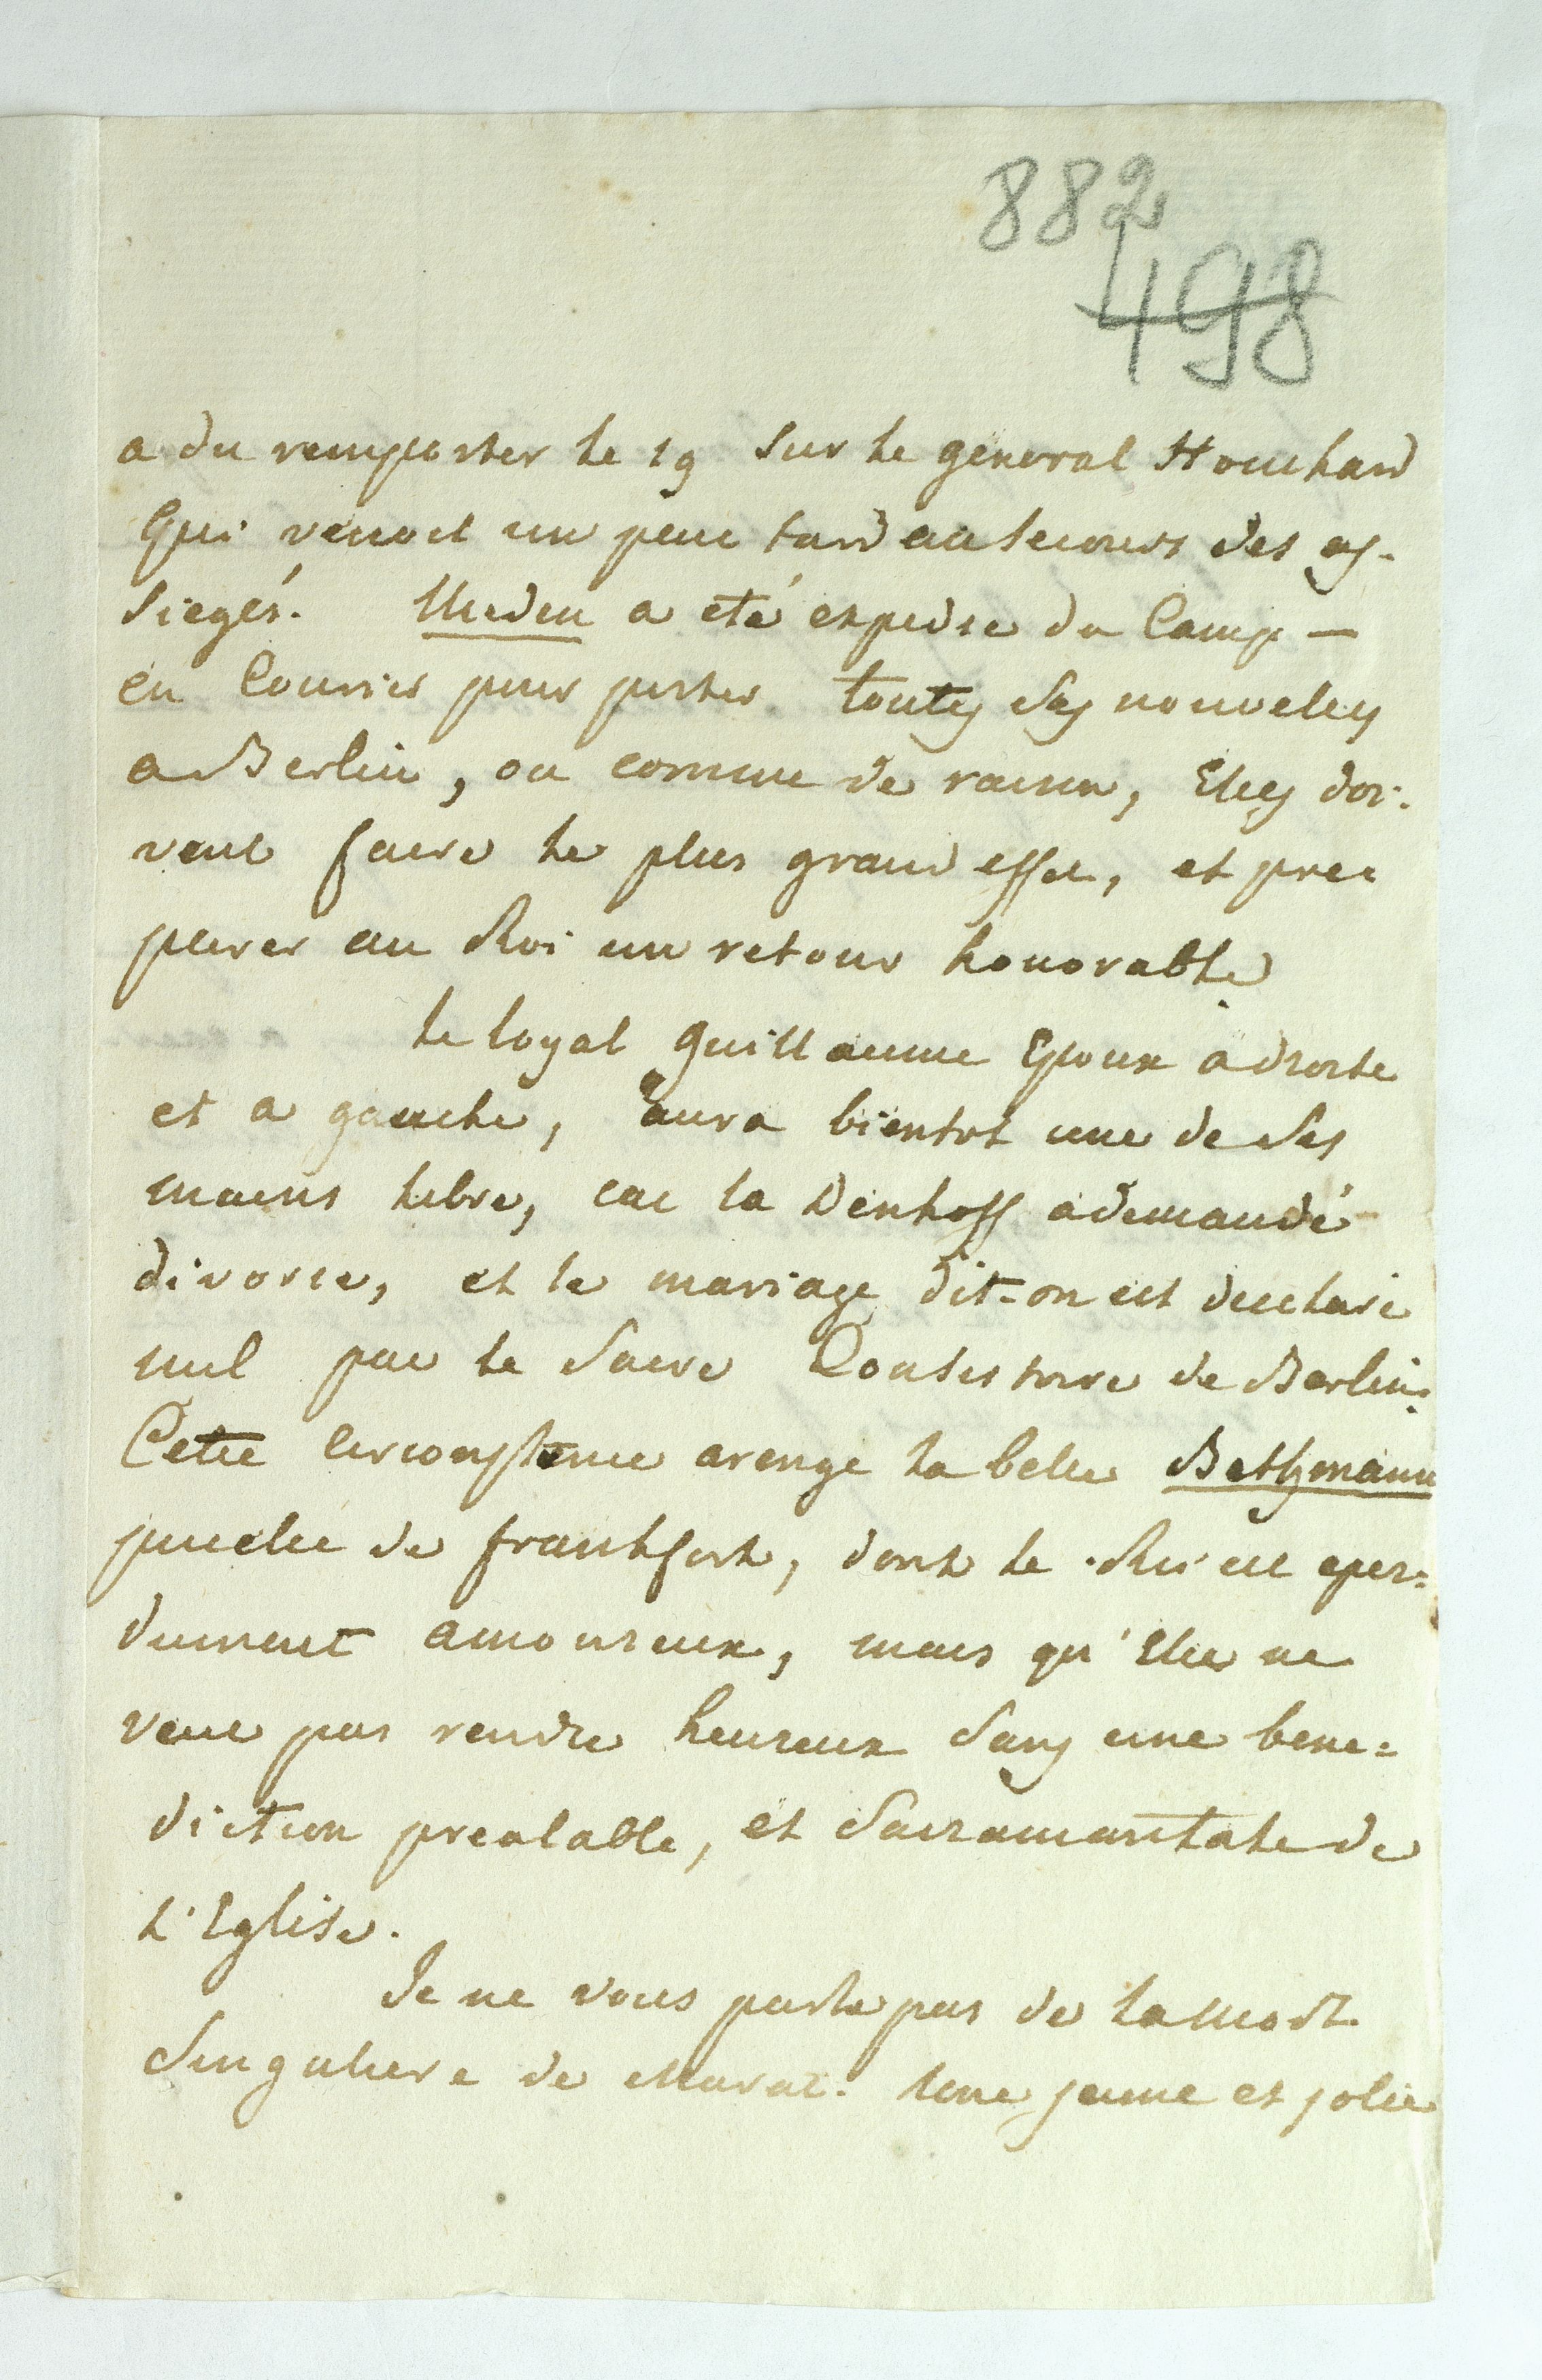 882
498
a du remporter le 19 sur le general Houchard
Qui venoit un peu tard au secours des as-
siegés. Meden a eté expedie du Camp —
en Courier pour porter toutes ses nouvelles
a Berlin, ou comme de raison, Elles doi-
vent faire le plus grand effet, et pre
parer au Roi un retour honorable
le loyal Guillaume Epoux a droite
et a gauche, aura bientot une de ses
mains libre, car la Denhoff a demandé
divorce, et le mariage dit-on est declaré
nul par le Sacre Consistoire de Berlin.
Cette circonstance arenge la belle Bethmann
pucelle de francfort, dont le Roi est eper=
dument amoureux, mais qu'Elle ne
veut pas rendre heureux sans une bene=
diction prealable, et Sacramentale de
L'Eglise.
Je ne vous parle pas de la mort
Singuliere de Marat. Une jeune et jolie